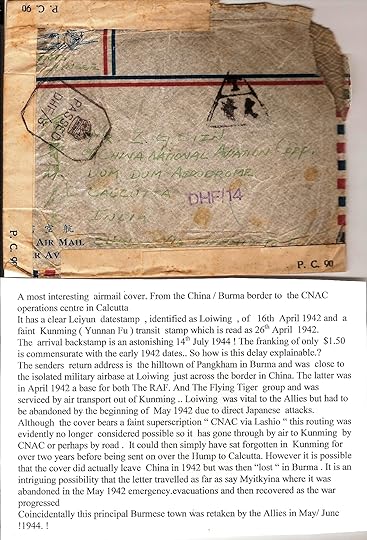 P. C. 90
PASSED
DHF/8
CHINA NATIONAL AVIATION
DUM DUM AERODROME
CALCUTTA
INDIA
DHF/14
空 航
AIR MAIL
R AV
P. C. 90
P. C. 90
A most interesting airmail cover. From the China / Burma border to the CNAC
operations centre in Calcutta
It has a clear Leiyun datestamp , identified as Loiwing , of 16th April 1942 and a
faint Kunming ( Yunnan Fu ) transit stamp which is read as 26th April 1942.
The arrival backstamp is an astonishing 14th July 1944 ! The franking of only $1.50
is commensurate with the early 1942 dates.. So how is this delay explainable.?
The senders return address is the hilltown of Pangkham in Burma and was close to
the isolated military airbase at Loiwing just across the border in China. The latter was
in April 1942 a base for both The RAF. And The Flying Tiger group and was
serviced by air transport out of Kunming .. Loiwing was vital to the Allies but had to
be abandoned by the beginning of May 1942 due to direct Japanese attacks.
Although the cover bears a faint superscription “ CNAC via Lashio “ this routing was
evidently no longer considered possible so it has gone through by air to Kunming by
CNAC or perhaps by road . It could then simply have sat forgotten in Kunming for
over two years before being sent on over the Hump to Calcutta. However it is possible
that the cover did actually leave China in 1942 but was then “lost “ in Burma . It is an
intriguing possibility that the letter travelled as far as say Myitkyina where it was
abandoned in the May 1942 emergency.evacuations and then recovered as the war
progressed
Coincidentally this principal Burmese town was retaken by the Allies in May/ June
!1944. !